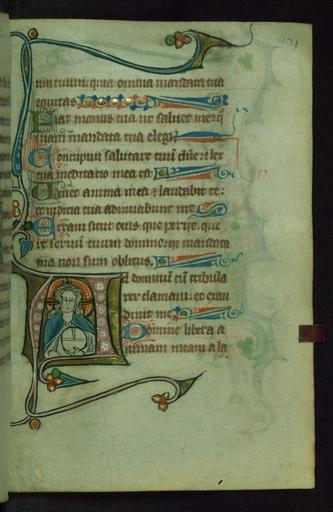 uium tuum: quia omnia mandata tua
equitas
Fiat manus tua ut saluet me: qm
mandata tua elegi
Concupiui salutare tuum dne: et lex
tua meditatio mea est
Uiuet anima mea et laudabit te:
et iudicia tua adiuuabunt me
Erraui sicut ouis que periit: que
re seruum tuum domine: quia mandata
tua non sum oblitus
Ad dominum cum tribula
rer clamaui: et exau
diuit me
Domine libera a
nimam meam a la